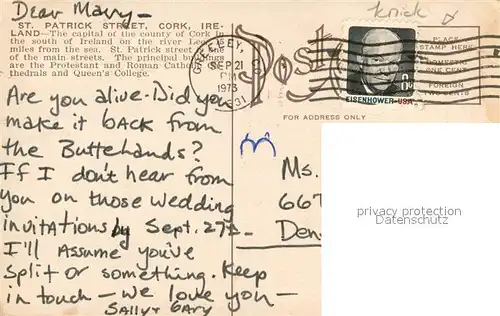 Dear Mary-
ST. PATRICK STREET, CORK, IRE-
LAND—The capital of the county of Cork in
the south of Ireland on the river Lee,
miles from the sea. St. Patrick street
of the main streets. The principal buildings
are the Protestant and Roman Catholic
thedrals and Queen's College.
Are you alive-Did you
make it back from
the Buttehands?
If I don't hear from
you on those wedding
invitations by Sept. 27th-
I'll Assume you've
split or something. Keep
in touch - we love you -
Sally + Gary
SEP 21
PM
1973
Post
PLACE
STAMP HERE
DOMESTIC
ONE CENT
FOREIGN
TWO CENTS
EISENHOWER·USA
FOR ADDRESS ONLY
Ms.
667
Den
privacy protection
Datenschutz